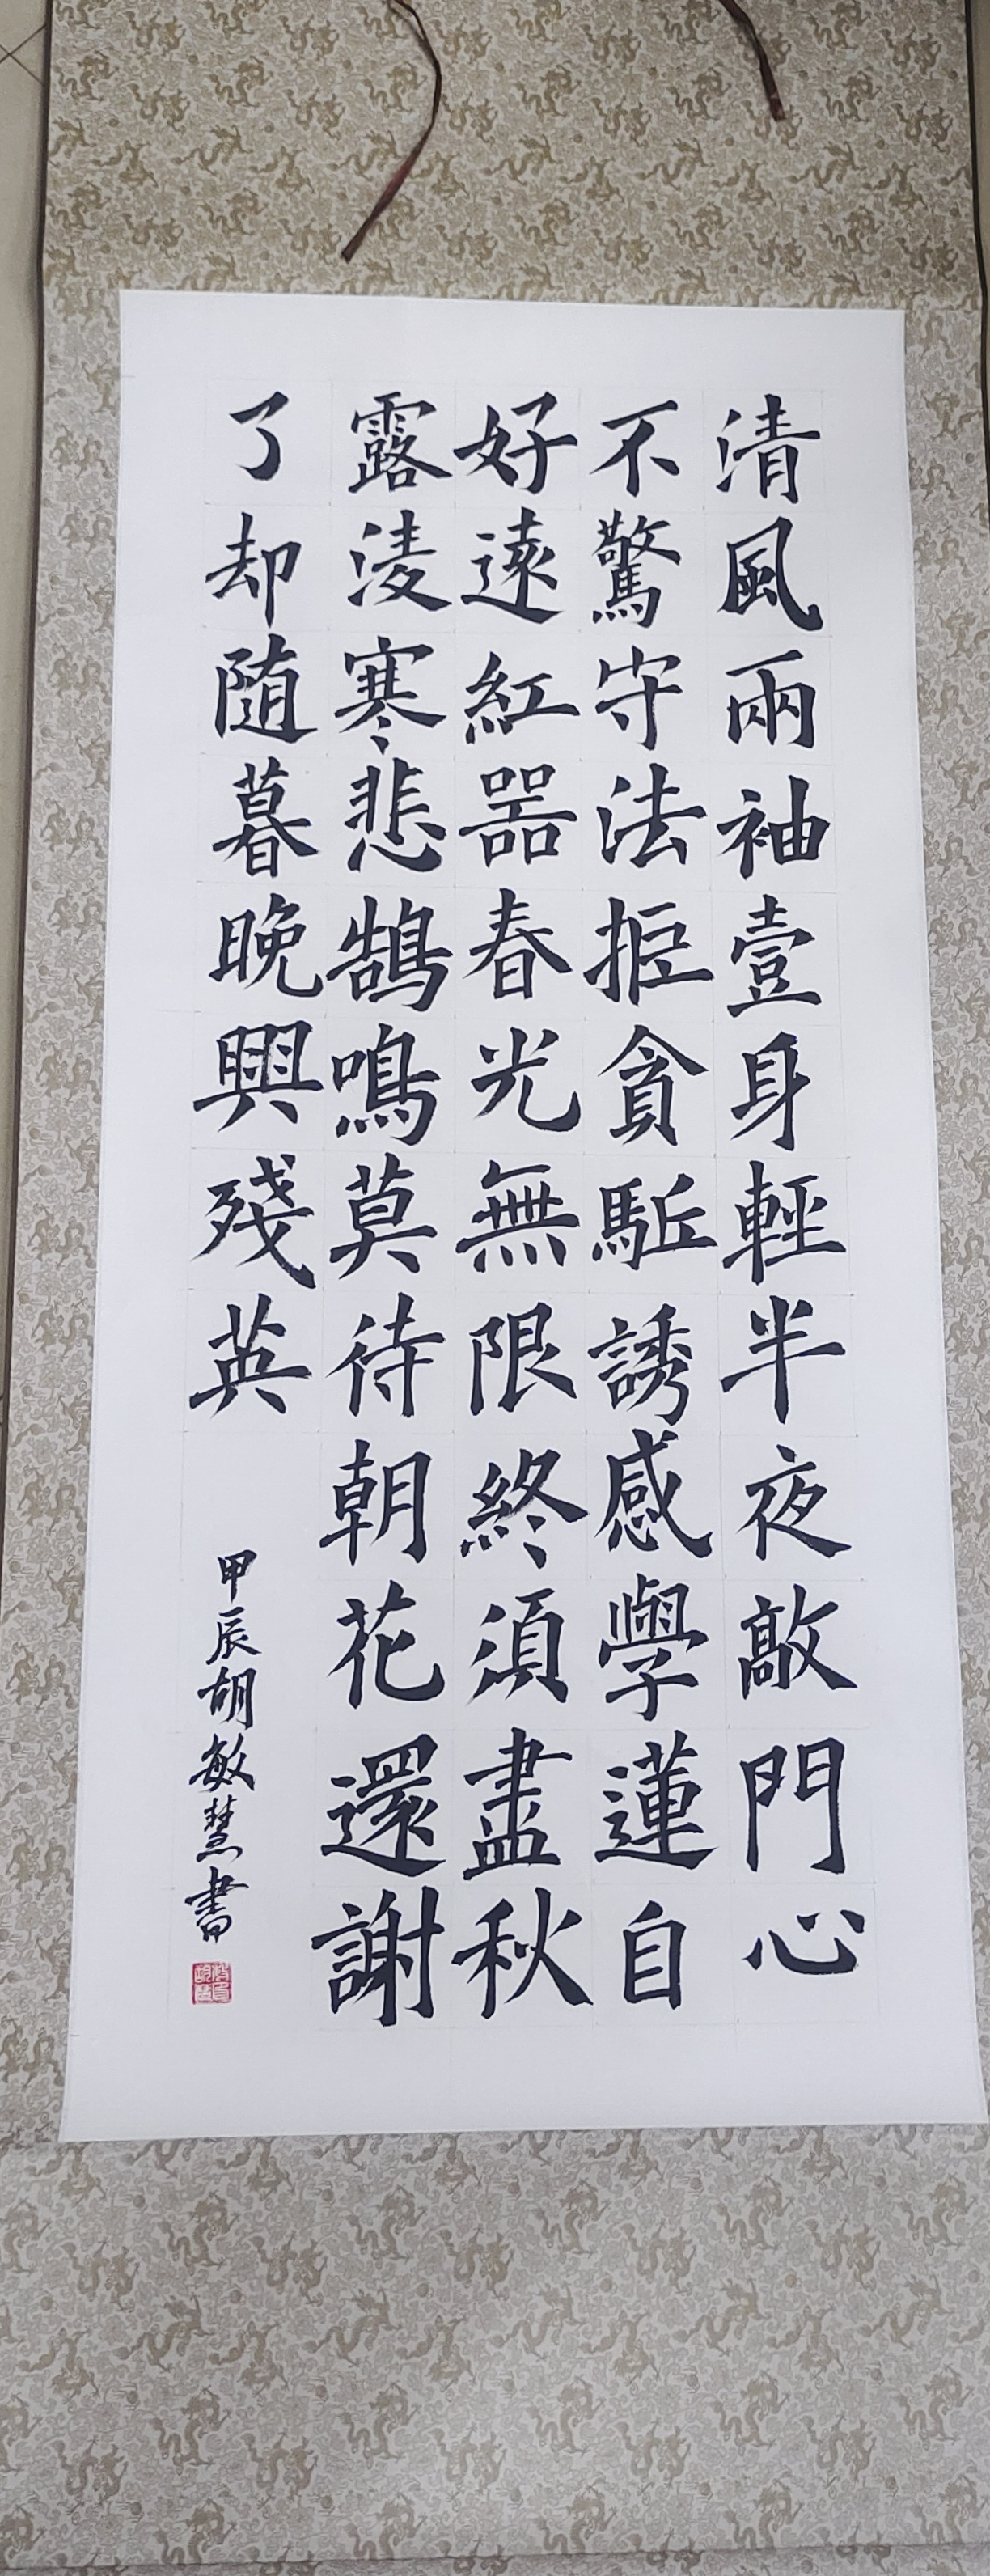 清風兩袖壹身輕半夜敲門心
不驚守法拒貪駈誘感學蓮自
好遠紅噐春光無限終須盡秋
露淩寒悲鵠鳴莫待朝花還謝
了却随暮晚興殘英
甲辰胡敏慧書